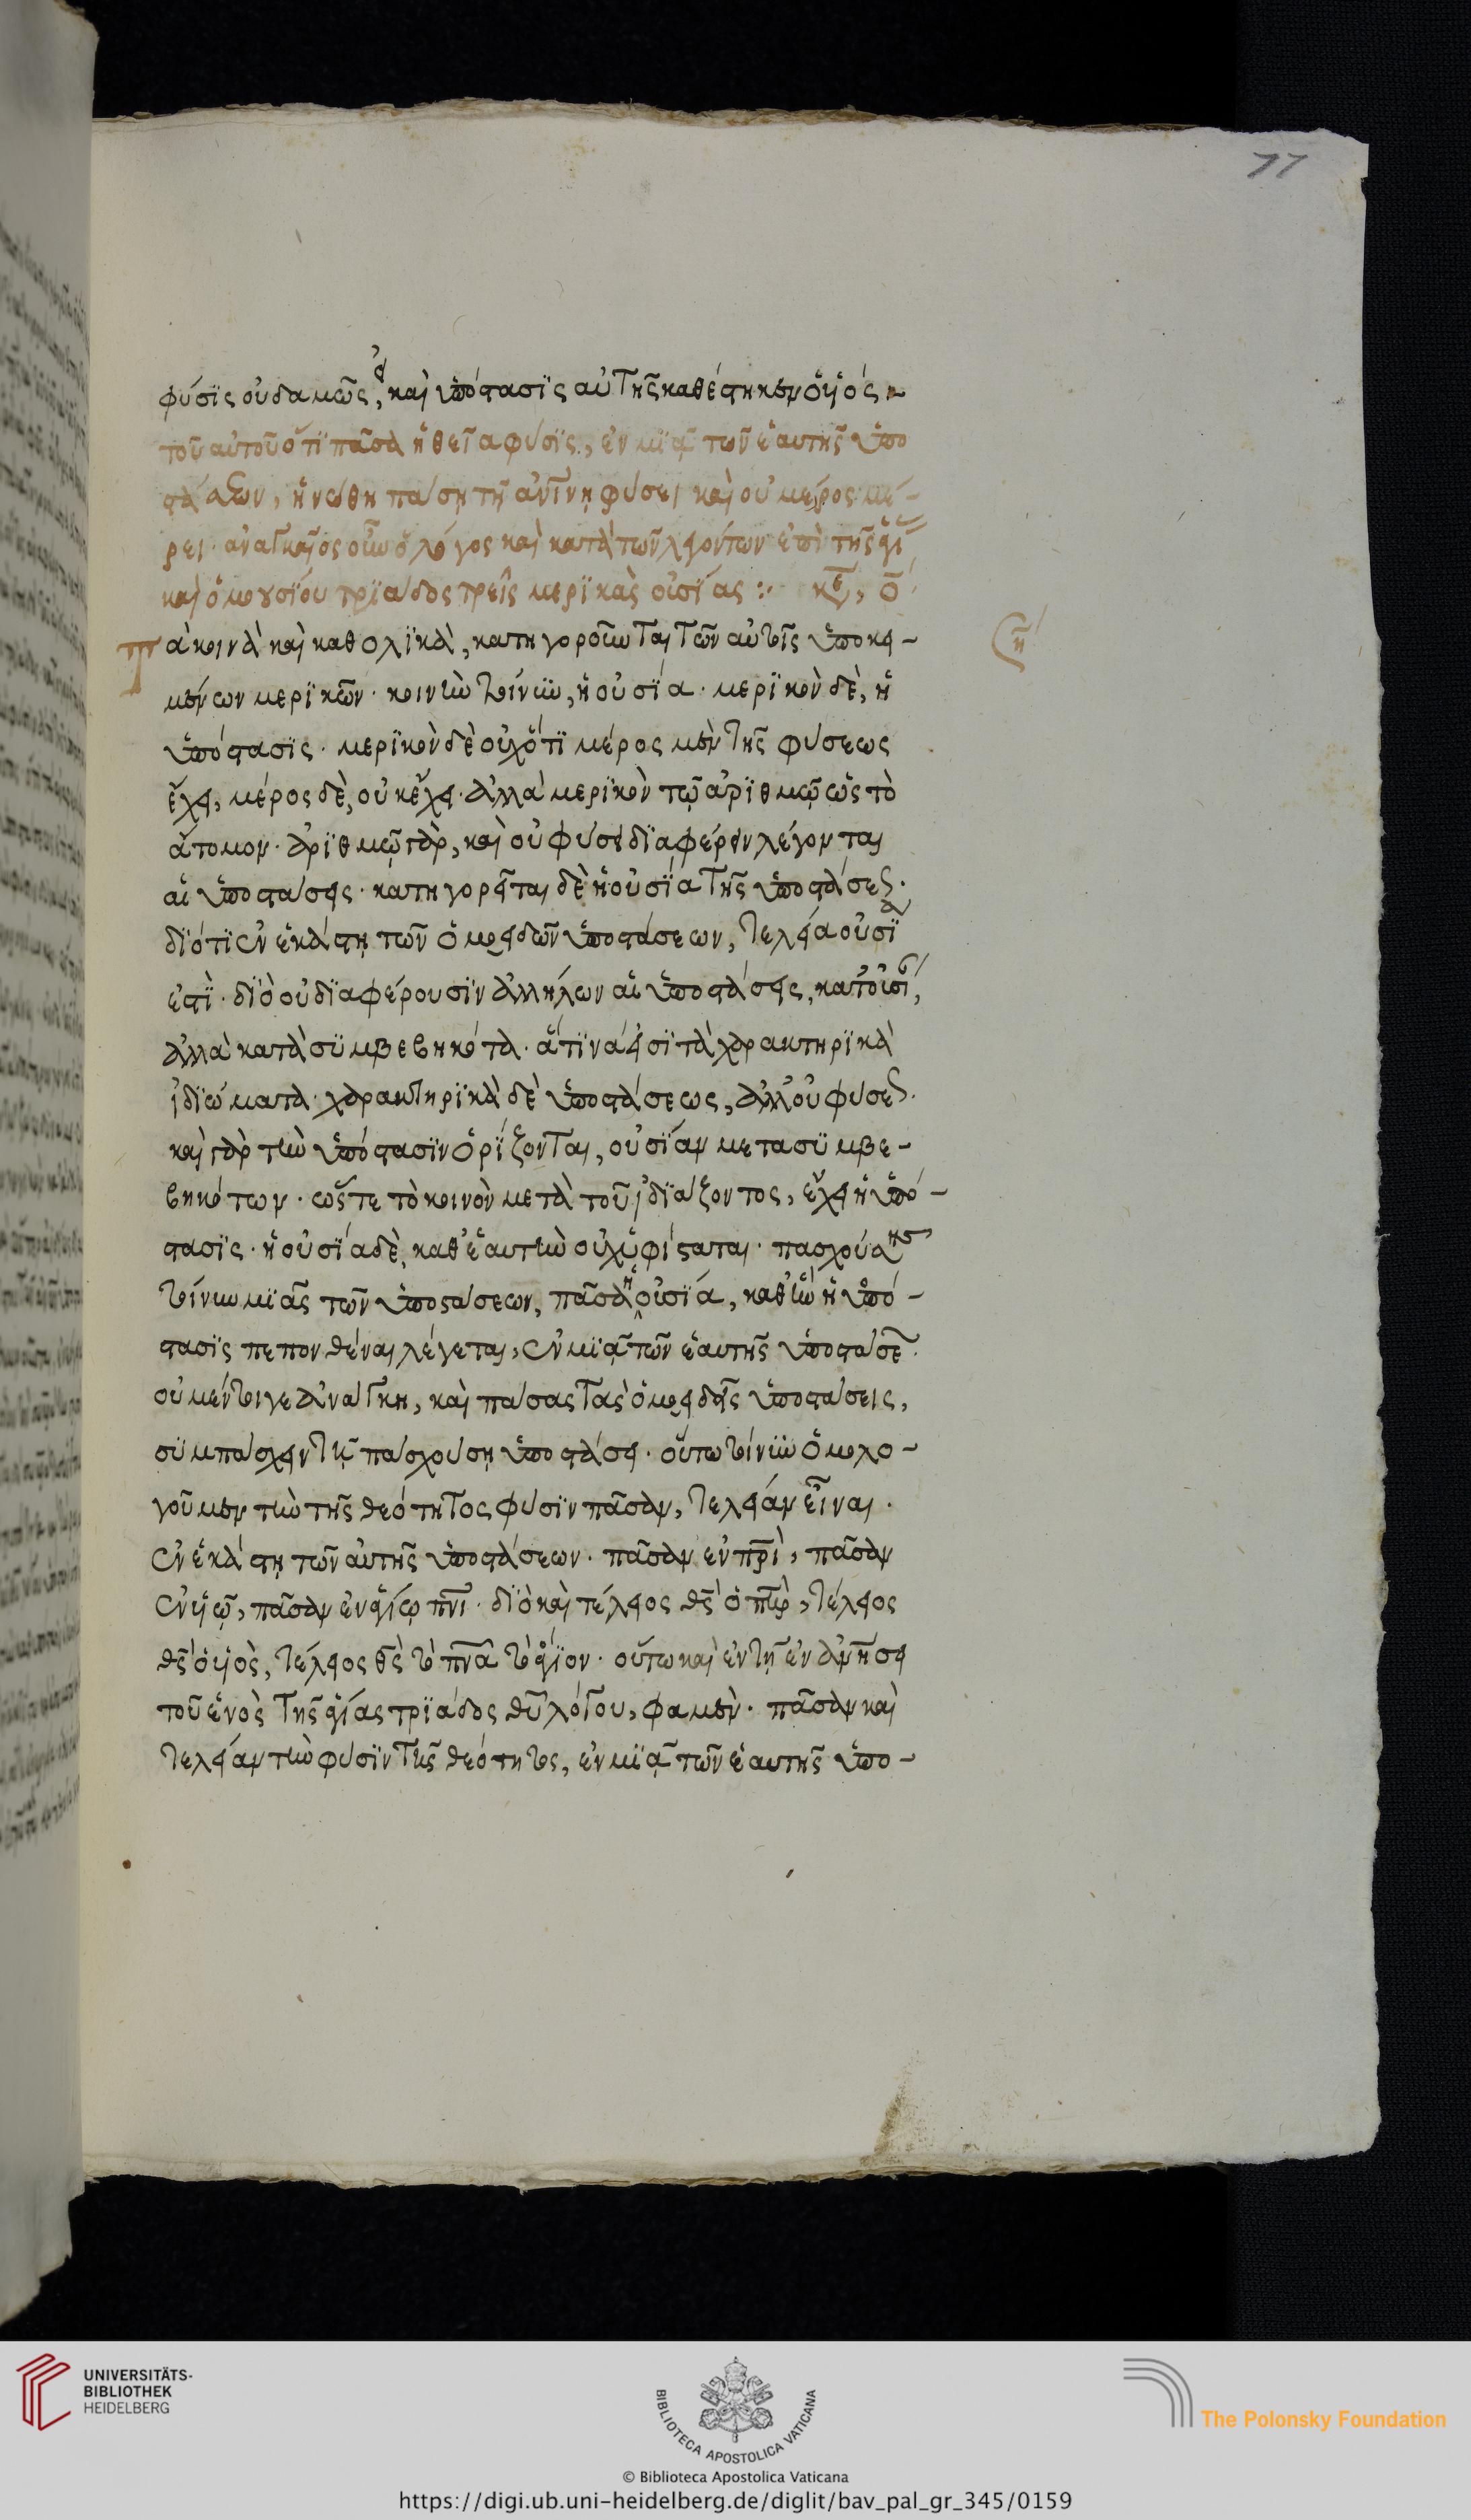 77
φύσϊς οὐδαμῶς, καὶ ὑπόστασϊς αὐτῆς καθέστηκεν ὁ υἱός
τοῦ αὐτοῦ ὅτϊ πᾶσα ἡ θεῖα φύσϊς, ἐν μϊᾷ τῶν ἑαυτῆς ὑπο
στάσεων, ἡνώθη πάσῃ τῇ ἀνίνῃ φύσει καὶ οὐ μέρος μέ-
ρει· ἀναγκαῖος οὖν ὁ λόγος καὶ κατὰ τῶν λεγόντων ἐπὶ τῆς ἁγί
καὶ ὁμουσΐου τρϊάδος τρεῖς μερϊκὰς οὐσΐας :
Τὰ κοινὰ καὶ καθολϊκὰ, κατηγοροῦνται τῶν αὐτοῖς ὑποκει-
μένων μερϊκῶν· κοινὸν τοίνυν, ἡ οὐσΐα· μερϊκὸν δὲ, ἡ
ὑπόστασϊς· μερϊκὸν δὲ οὐχ ὅτϊ μέρος μὲν τῆς φύσεως
ἔχει, μέρος δὲ, οὐκ ἔχει· ἀλλὰ μερϊκὸν τῷ ἀρϊθμῷ ὡς τὸ
ἄτομον· ἀρϊθμῷ γὰρ, καὶ οὐ φύσει δϊαφέρειν λέγονται
αἱ ὑποστάσεις· κατηγορεῖται δὲ ἡ οὐσΐα τῆς ὑποστάσεως·
δϊότϊ ἐν ἑκάστῃ τῶν ὁμοειδῶν ὑποστάσεων, τελεία οὐσΐα
ἐστΐ· δϊὸ οὐ δϊαφέρουσϊν ἀλλήλων αἱ ὑποστάσεις, κατ' οὐσίαν,
ἀλλὰ κατὰ συμβεβηκότα· ἅτϊνά εἰσϊ τὰ χαρακτηρϊκὰ
ἰδϊώματα· χαρακτηρϊκὰ δὲ ὑποστάσεως, ἀλλ' οὐ φύσεως·
καὶ γὰρ τὴν ὑπόστασϊν ὁρΐζονται, οὐσΐαν μετα συμβε-
βηκότων· ὥστε τὸ κοινὸν μετὰ τοῦ ἰδϊάζοντος, ἔχει ἡ ὑπό-
στασϊς· ἡ οὐσΐα δὲ, καθ' ἑαυτὴν οὐχ ὑφίσταται· πασχούσης
τοίνυν μϊᾶς τῶν ὑποστάσεων, πᾶσα ἡ οὐσΐα, καθ' ἣν ἡ ὑπό-
στασϊς πεπονθέναι λέγεται, ἐν μϊᾷ τῶν ἑαυτῆς ὑποστάσε·
οὐ μέντοιγε ἀνάγκη, καὶ πάσας τὰς ὁμοειδεῖς ὑποστάσεις,
συμπάσχειν τῇ πασχούσῃ ὑποστάσει· οὕτω τοίνυν ὁμολο-
γοῦμεν τὴν τῆς θεότητος φύσϊν πᾶσαν, τελείαν εἶναι·
ἐν ἑκάστῃ τῶν αὐτῆς ὑποστάσεων· πᾶσαν ἐν πρὶ, πᾶσαν
ἐν υἱῷ, πᾶσαν ἐν ἁγίῳ πνι· δϊὸ καὶ τέλειος θς ὁ πηρ, τέλειος
θς ὁ υἱὸς, τέλειος θς τὸ πνα τὸ ἅγϊον· οὕτω καὶ ἐν τῇ ἐνανήσει
τοῦ ἑνὸς τῆς ἁγίας τρϊάδος θυ λόγου, φαμὲν· πᾶσαν καὶ
τελείαν τὴν φύσϊν τῆς θεότητος, ἐν μϊᾷ τῶν ἑαυτῆς ὑπο-
UNIVERSITÄTS-
BIBLIOTHEK
HEIDELBERG
BIBLIOTECA APOSTOLICA VATICANA
The Polonsky Foundation
© Biblioteca Apostolica Vaticana
https://digi.ub.uni-heidelberg.de/diglit/bav_pal_gr_345/0159